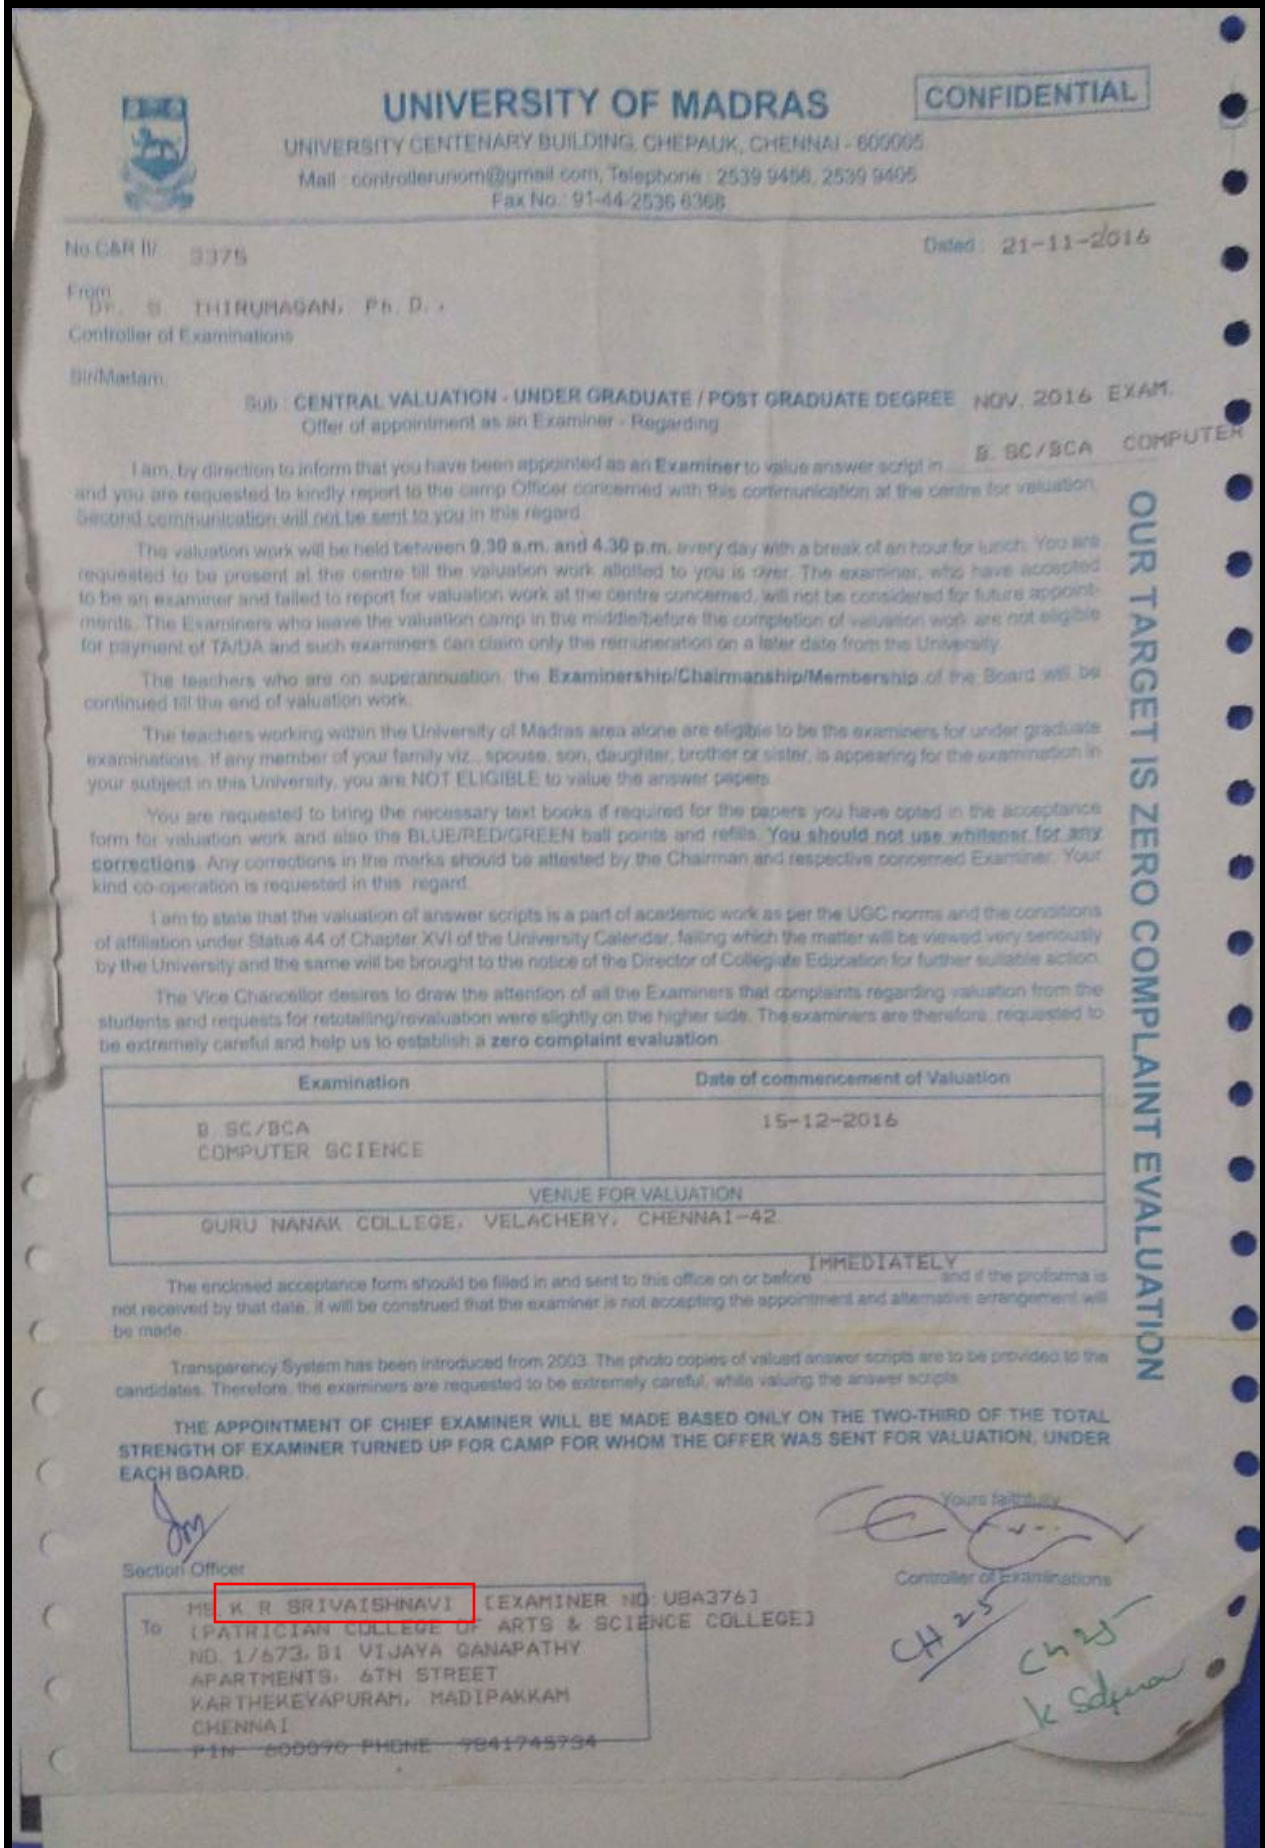 UNIVERSITY OF MADRAS
CONFIDENTIAL
UNIVERSITY CENTENARY BUILDING, CHEPAUK, CHENNAI - 600005
Mail : controllerunom@gmail.com, Telephone : 2539 9456, 2539 9405
Fax No. : 91-44-2536 6368
No.C&R II/ 3375
Dated : 21-11-2016
From
Dr. S THIRUMAGAN, Ph. D.,
Controller of Examinations
Sir/Madam,
Sub : CENTRAL VALUATION - UNDER GRADUATE / POST GRADUATE DEGREE NOV. 2016 EXAM.
Offer of appointment as an Examiner - Regarding
B. SC/BCA COMPUTER
I am, by direction to inform that you have been appointed as an Examiner to value answer script in
and you are requested to kindly report to the camp Officer concerned with this communication at the centre for valuation.
Second communication will not be sent to you in this regard.
The valuation work will be held between 9.30 a.m. and 4.30 p.m. every day with a break of an hour for lunch. You are
requested to be present at the centre till the valuation work allotted to you is over. The examiner, who have accepted
to be an examiner and failed to report for valuation work at the centre concerned, will not be considered for future appoint-
ments. The Examiners who leave the valuation camp in the middle/before the completion of valuation work are not eligible
for payment of TA/DA and such examiners can claim only the remuneration on a later date from the University.
The teachers who are on superannuation, the Examinership/Chairmanship/Membership of the Board will be
continued till the end of valuation work.
The teachers working within the University of Madras area alone are eligible to be the examiners for under graduate
examinations. If any member of your family viz., spouse, son, daughter, brother or sister, is appearing for the examination in
your subject in this University, you are NOT ELIGIBLE to value the answer papers.
You are requested to bring the necessary text books if required for the papers you have opted in the acceptance
form for valuation work and also the BLUE/RED/GREEN ball points and refills. You should not use whitener for any
corrections. Any corrections in the marks should be attested by the Chairman and respective concerned Examiner. Your
kind co-operation is requested in this regard.
I am to state that the valuation of answer scripts is a part of academic work as per the UGC norms and the conditions
of affiliation under Statue 44 of Chapter XVI of the University Calendar, failing which the matter will be viewed very seriously
by the University and the same will be brought to the notice of the Director of Collegiate Education for further suitable action.
The Vice Chancellor desires to draw the attention of all the Examiners that complaints regarding valuation from the
students and requests for retotalling/revaluation were slightly on the higher side. The examiners are therefore, requested to
be extremely careful and help us to establish a zero complaint evaluation.
Examination Date of commencement of Valuation
B. SC/BCA 15-12-2016
COMPUTER SCIENCE
VENUE FOR VALUATION
GURU NANAK COLLEGE, VELACHERY, CHENNAI-42.
IMMEDIATELY
The enclosed acceptance form should be filled in and sent to this office on or before and if the proforma is
not received by that date, it will be construed that the examiner is not accepting the appointment and alternative arrangement will
be made.
Transparency System has been introduced from 2003. The photo copies of valued answer scripts are to be provided to the
candidates. Therefore, the examiners are requested to be extremely careful, while valuing the answer scripts.
THE APPOINTMENT OF CHIEF EXAMINER WILL BE MADE BASED ONLY ON THE TWO-THIRD OF THE TOTAL
STRENGTH OF EXAMINER TURNED UP FOR CAMP FOR WHOM THE OFFER WAS SENT FOR VALUATION, UNDER
EACH BOARD.
OUR TARGET IS ZERO COMPLAINT EVALUATION
Yours faithfully
Section Officer
Controller of Examinations
MS. K R SRIVAISHNAVI [EXAMINER NO: UBA376]
To [PATRICIAN COLLEGE OF ARTS & SCIENCE COLLEGE]
NO. 1/673, B1 VIJAYA GANAPATHY
APARTMENTS, 6TH STREET
KARTHEKEYAPURAM, MADIPAKKAM
CHENNAI
PIN 600090 PHONE 9841745734
CH 25
Ch 25